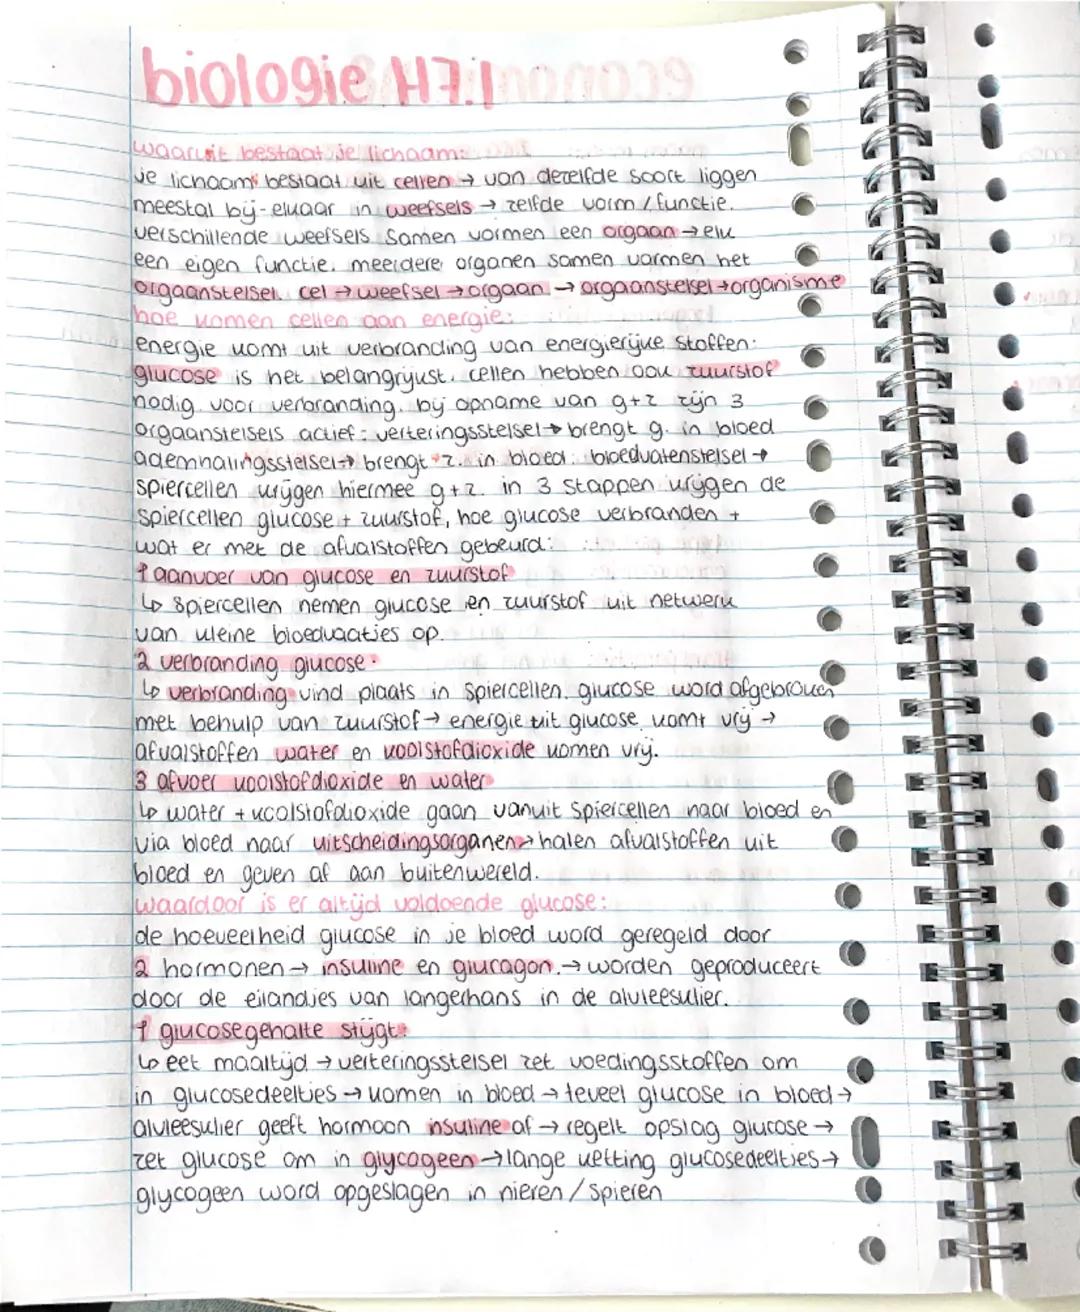 biologie H7.1
waaruit bestaat je lichaam:
je lichaam bestaat uit cellen → van dezelfde soort liggen
meestal bij-elkaar in weefsels → zelfde vorm / functie.
verschillende weefsels samen vormen een orgaan → elk
een eigen functie. meerdere organen samen vormen het
orgaanstelsel. cel → weefsel → orgaan → orgaanstelsel → organisme
hoe komen cellen aan energie:
energie komt uit verbranding van energierijke stoffen.
glucose is het belangrijkst. cellen hebben ook zuurstof
nodig voor verbranding. bij opname van g+z zijn 3
orgaanstelsels actief: verteringsstelsel → brengt g. in bloed
ademhalingsstelsel → brengt z. in bloed. bloedvatenstelsel →
spiercellen krijgen hiermee g+z. in 3 stappen krijgen de
spiercellen glucose + zuurstof, hoe glucose verbranden +
wat er met de afvalstoffen gebeurd:
1 aanvoer van glucose en zuurstof
↳ spiercellen nemen glucose en zuurstof uit netwerk
van kleine bloedvaatjes op.
2 verbranding glucose.
↳ verbranding vind plaats in spiercellen. glucose word afgebroken
met behulp van zuurstof → energie uit glucose komt vrij →
afvalstoffen water en koolstofdioxide komen vrij.
3 afvoer koolstofdioxide en water
↳ water + koolstofdioxide gaan vanuit spiercellen naar bloed en
via bloed naar uitscheidingsorganen → halen afvalstoffen uit
bloed en geven af aan buitenwereld.
waardoor is er altijd voldoende glucose:
de hoeveelheid glucose in je bloed word geregeld door
2 hormonen → insuline en glucagon. → worden geproduceert
door de eilandjes van langerhans in de alvleesklier.
1 glucosegehalte stijgt:
↳ eet maaltijd → verteringsstelsel zet voedingsstoffen om
in glucosedeeltjes → komen in bloed → teveel glucose in bloed →
alvleesklier geeft hormoon insuline af → regelt opslag glucose →
zet glucose om in glycogeen → lange ketting glucosedeeltjes →
glycogeen word opgeslagen in nieren / spieren